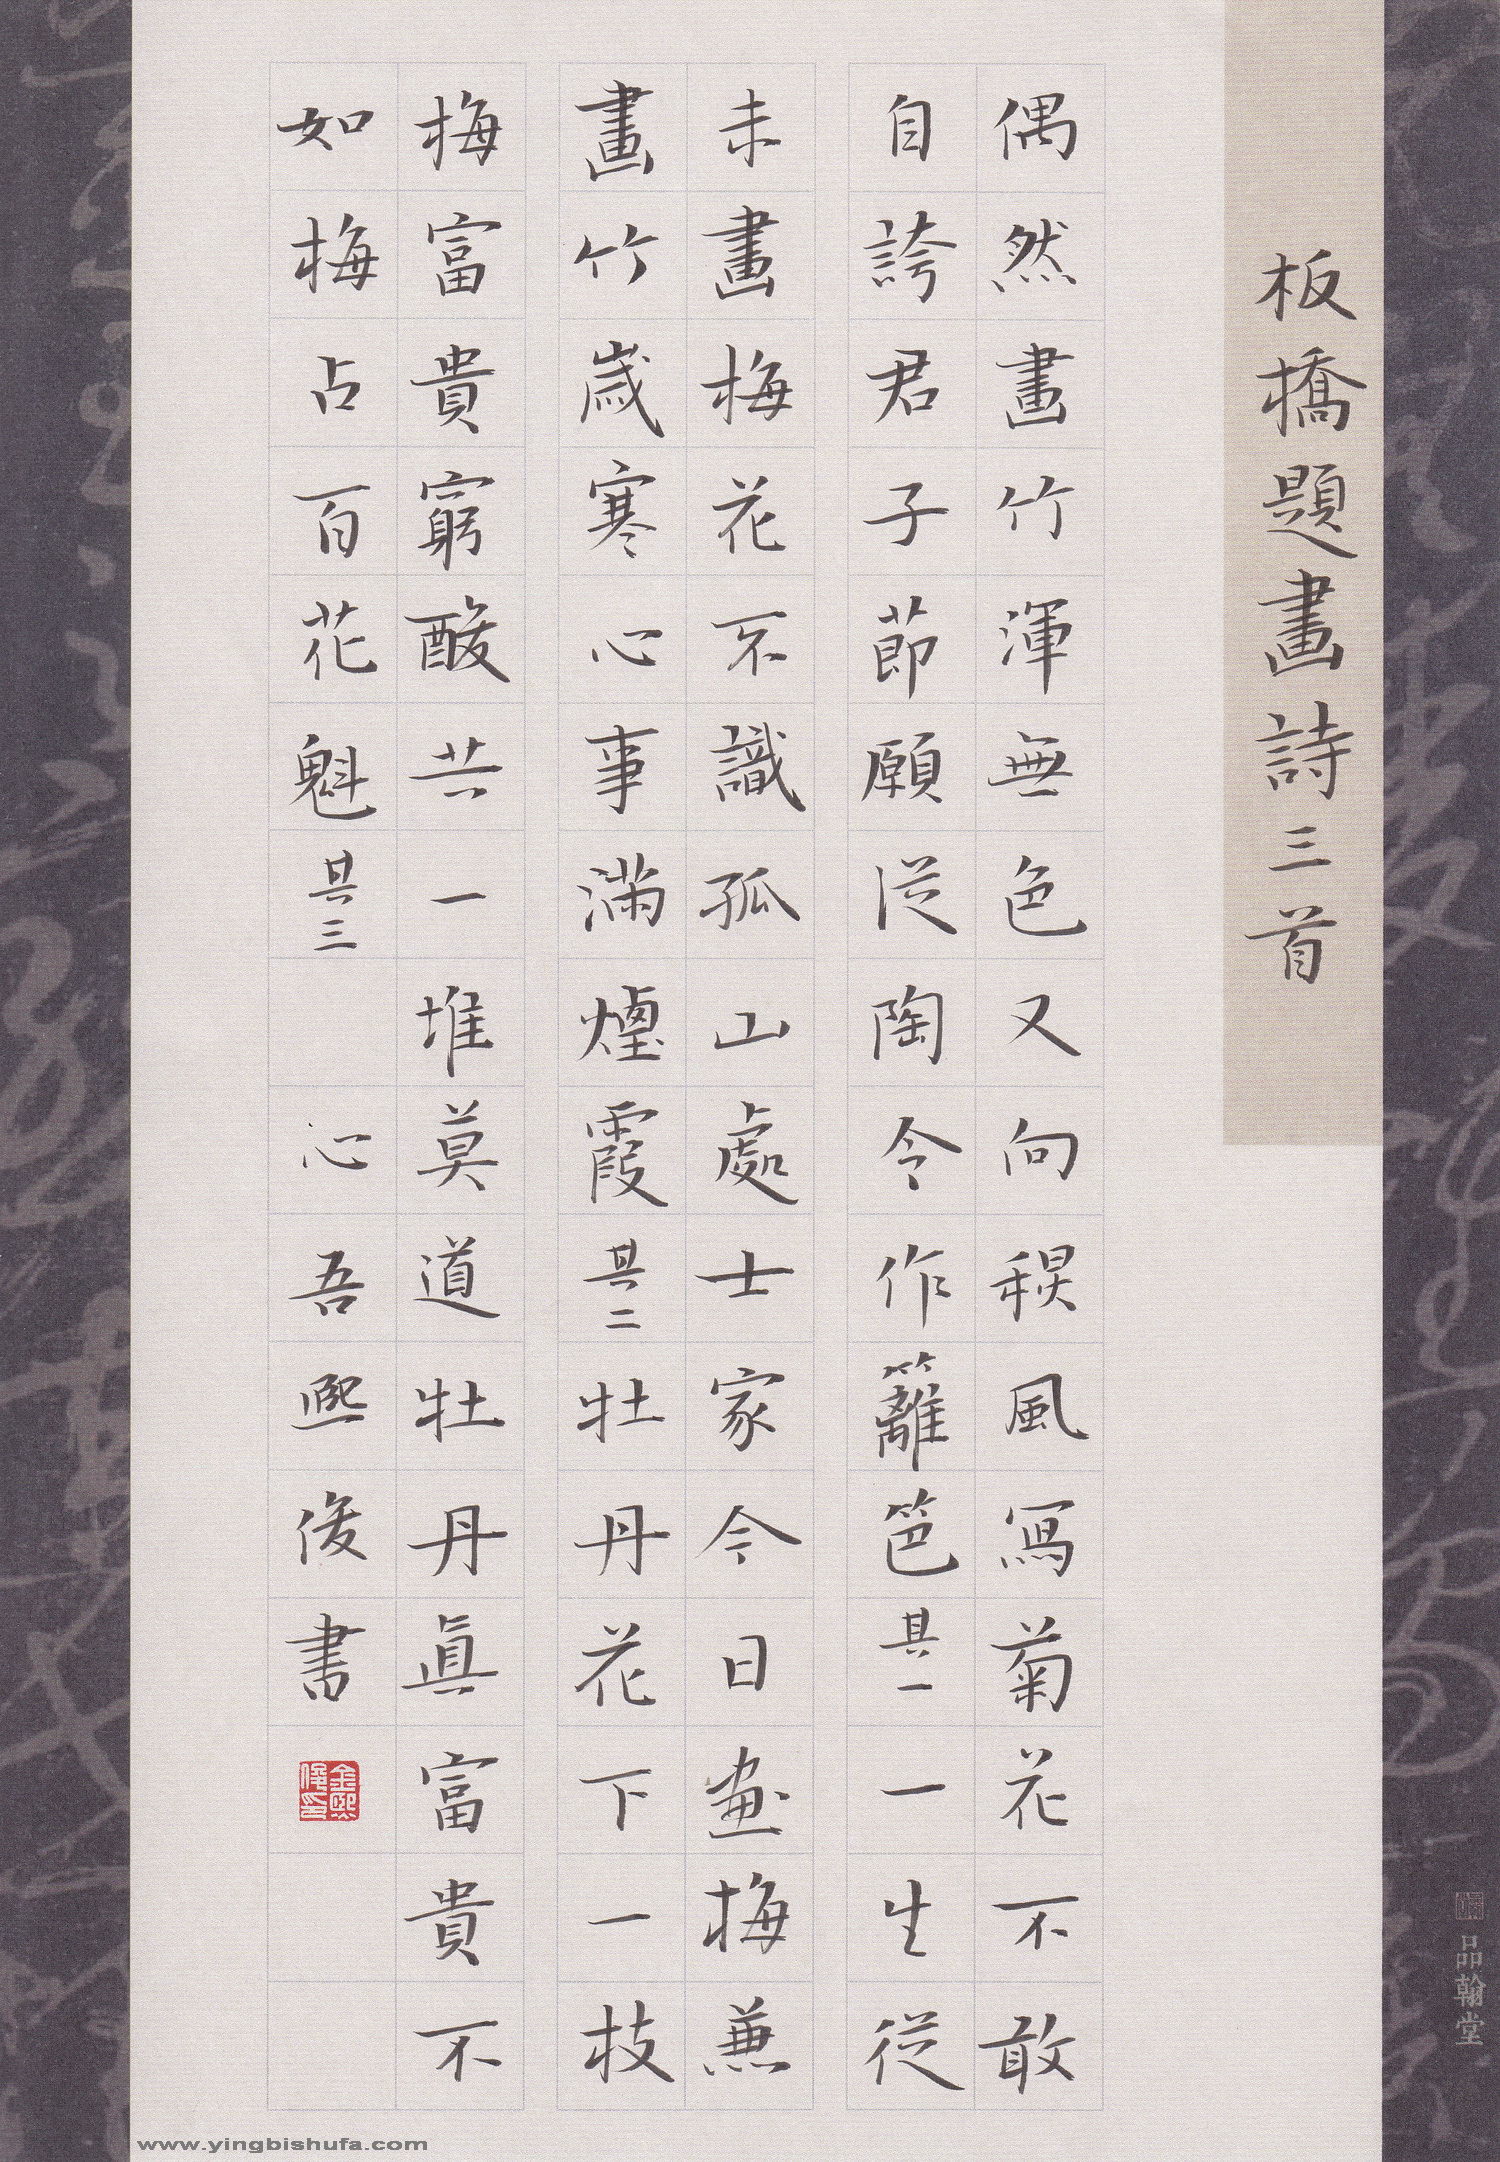 板橋題畫詩三首
偶然畫竹渾無色又向秋風寫菊花不敢
自誇君子節願從陶令作籬笆其一一生從
未畫梅花不識孤山處士家今日画梅兼
畫竹歲寒心事滿煙霞其二牡丹花下一枝
梅富貴窮酸共一堆莫道牡丹眞富貴不
如梅占百花魁其三 心吾熙俊書
金熙俊印
品翰堂
www.yingbishufa.com